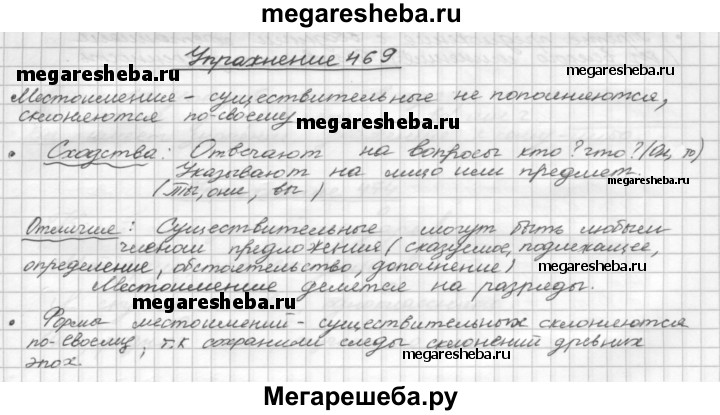 megaresheba.ru
Упражнение 469
megaresheba.ru
megaresheba.ru
Местоимения - существительные не пополняются,
склоняются по-своему
megaresheba.ru
• Сходства: Отвечают на вопросы кто? что? (Он, то)
Указывают на лицо или предмет.
megaresheba.ru
(ты, они, вы)
Отличия: Существительные могут быть любым
членом предложения (сказуемое, подлежащее,
определение, обстоятельство, дополнение)
megaresheba.ru
Местоимение делятся на разряды.
megaresheba.ru
• Форма местоимений - существительных склоняются
по-своему, т.к сохранили следы склонений древних
megaresheba.ru
эпох.
Мегарешеба.ру